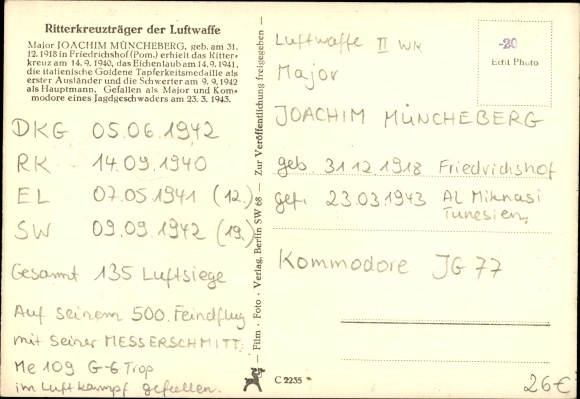 Ritterkreuzträger der Luftwaffe
Major JOACHIM MÜNCHEBERG, geb. am 31.
12.1918 in Friedrichshof (Pom.) erhielt das Ritter-
kreuz am 14. 9. 1940, das Eichenlaub am 14. 9. 1941,
die italienische Goldene Tapferkeitsmedaille als
erster Ausländer und die Schwerter am 9. 9. 1942
als Hauptmann. Gefallen als Major und Kom-
modore eines Jagdgeschwaders am 23. 3. 1943.
DKG 05.06.1942
RK 14.09.1940
EL 07.05.1941 (12.)
SW 09.09.1942 (19.)
Gesamt 135 Luftsiege
Auf seinem 500. Feindflug
mit seiner MESSERSCHMITT
Me 109 G-6 Trop
im Luftkampf gefallen.
— Film · Foto · Verlag, Berlin SW 68 — Zur Veröffentlichung freigegeben —
Luftwaffe II WK
Major
JOACHIM MÜNCHEBERG
geb. 31.12.1918 Friedrichshof
gef. 23.03.1943 AL Miknasi
Tunesien
Kommodore JG 77
-20
Echt Photo
C 2235
26€